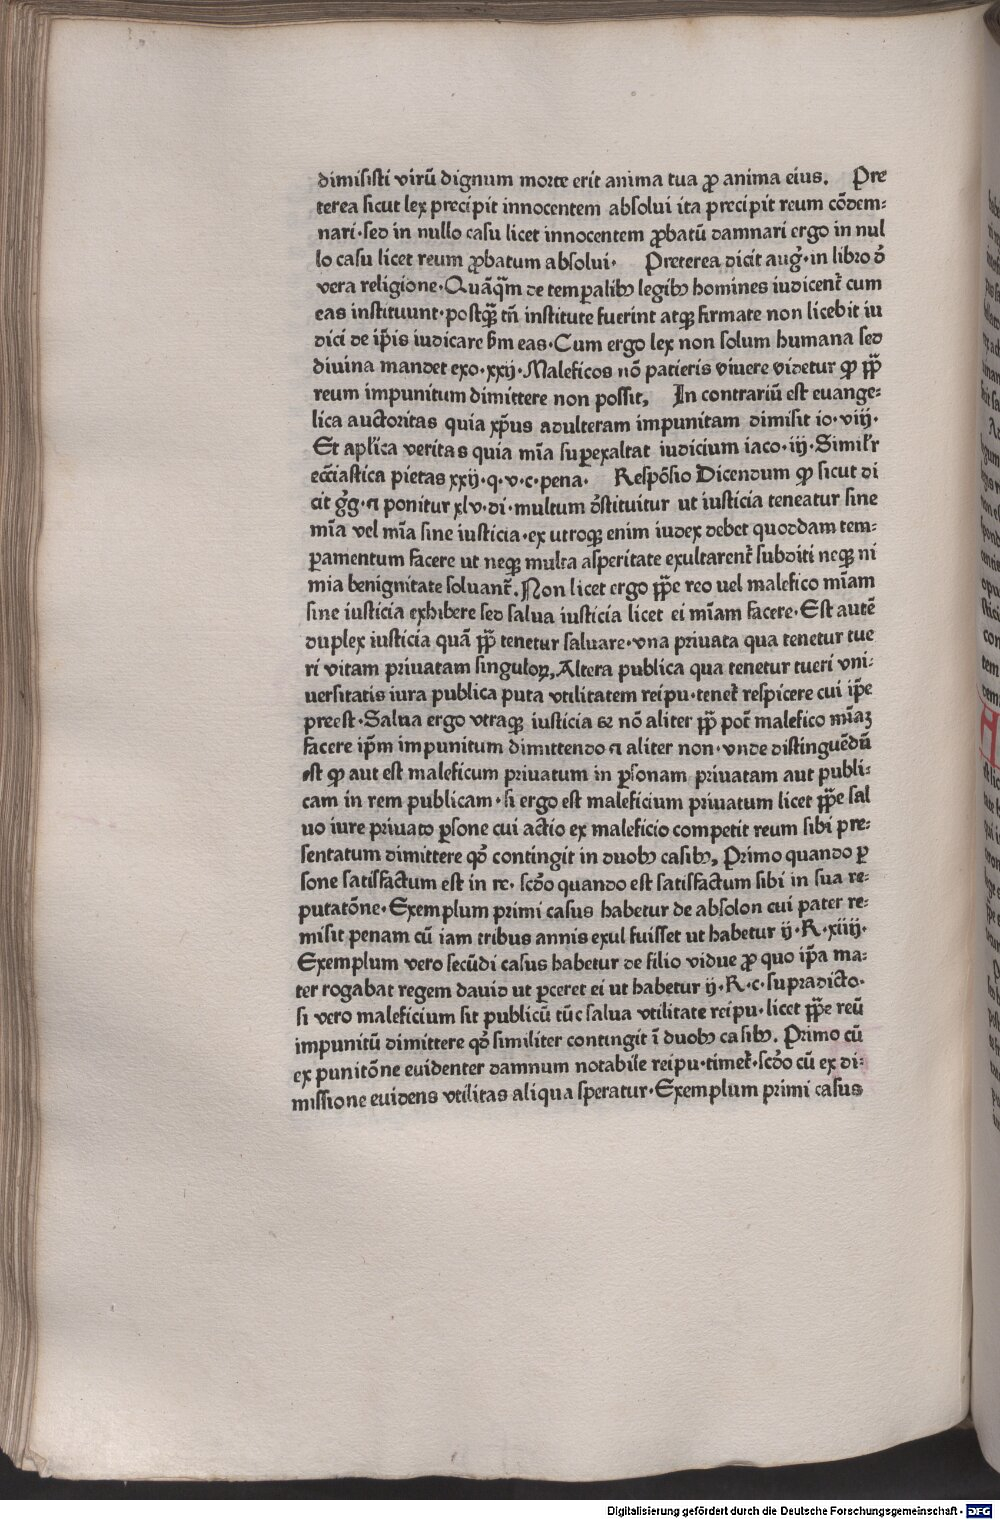 dimisisti virū dignum morte erit anima tua ꝓ anima eius. Pre
terea sicut lex precipit innocentem absolui ita precipit reum cōdem⸗
nari·sed in nullo casu licet innocentem ꝓbatū damnari ergo in nul
lo casu licet reum ꝓbatum absolui· Preterea dicit aug̉·in libro d̉
vera religione·Quāqͣm de temꝑalibꝫ legibꝫ homines iudicent̉ cum
eas instituunt·postqͣꝫ tñ institute fuerint atqꝫ firmate non licebit iu
dici de ip̄is iudicare ẜm eas·Cum ergo lex non solum humana sed
diuina mandet exo·xxij·Maleficos nō patieris viuere videtur ꝙ pͥpͣ
reum impunitum dimittere non possit, In contrariū est euange⸗
lica auctoritas quia xp̄us adulteram impunitam dimisit io·viij·
Et apl̄ica veritas quia mīa suꝑexaltat iudicium iaco·iij·Simil̓r
ecc̄iastica pietas xxij·q·v·c·pena· Respōsio Dicendum ꝙ sicut di
cit g̉g·⁊ ponitur xlv·di·multum d̉stituitur ut iusticia teneatur sine
mīa vel mīa sine iusticia·ex utroqꝫ enim iudex debet quoddam tem⸗
ꝑamentum facere ut neqꝫ multa asperitate exultarent̉ subditi neqꝫ ni
mia benignitate soluant̉. Non licet ergo pͥpͣe reo uel malefico mīam
sine iusticia exhibere sed salua iusticia licet ei mīam facere·Est autē
duplex iusticia quā pͥpͣ tenetur saluare·vna priuata qua tenetur tue
ri vitam priuatam singuloꝝ, Altera publica qua tenetur tueri vni⸗
uersitatis iura publica puta vtilitatem reipu·tenet̉ respicere cui ip̄e
preest·Salua ergo vtraqꝫ iusticia sꝫ nō aliter pͥpͣ pōt malefico mīaꝫ
facere ip̄m impunitum dimittendo ⁊ aliter non·vnde distinguēdū
est ꝙ aut est maleficum priuatum in ꝑsonam priuatam aut publi⸗
cam in rem publicam·si ergo est maleficium priuatum licet pͥpͣe sal
uo iure priuato ꝑsone cui actio ex maleficio competit reum sibi pre⸗
sentatum dimittere qd̉ contingit in duobꝫ casibꝫ, Primo quando ꝑ
sone satisfactum est in re· scd̓o quando est satisfactum sibi in sua re⸗
putatōne·Exemplum primi casus habetur de absolon cui pater re⸗
misit penam cū iam tribus annis exul fuisset ut habetur ij·R·xiiij·
Exemplum vero secūdi casus habetur de filio vidue ꝓ quo ip̄a ma⸗
ter rogabat regem dauid ut ꝑceret ei ut habetur ij·R·c·supradicto·
si vero maleficium sit publicū tūc salua vtilitate reipu·licet pͥpͣe reū
impunitū dimittere qd̉ similiter contingit ī duobꝫ casibꝫ. Primo cū
ex punitōne euidenter damnum notabile reipu·timet̉·scd̓o cū ex di⸗
missione euidens vtilitas aliqua speratur·Exemplum primi casus
Digitalisierung gefördert durch die Deutsche Forschungsgemeinschaft - DFG